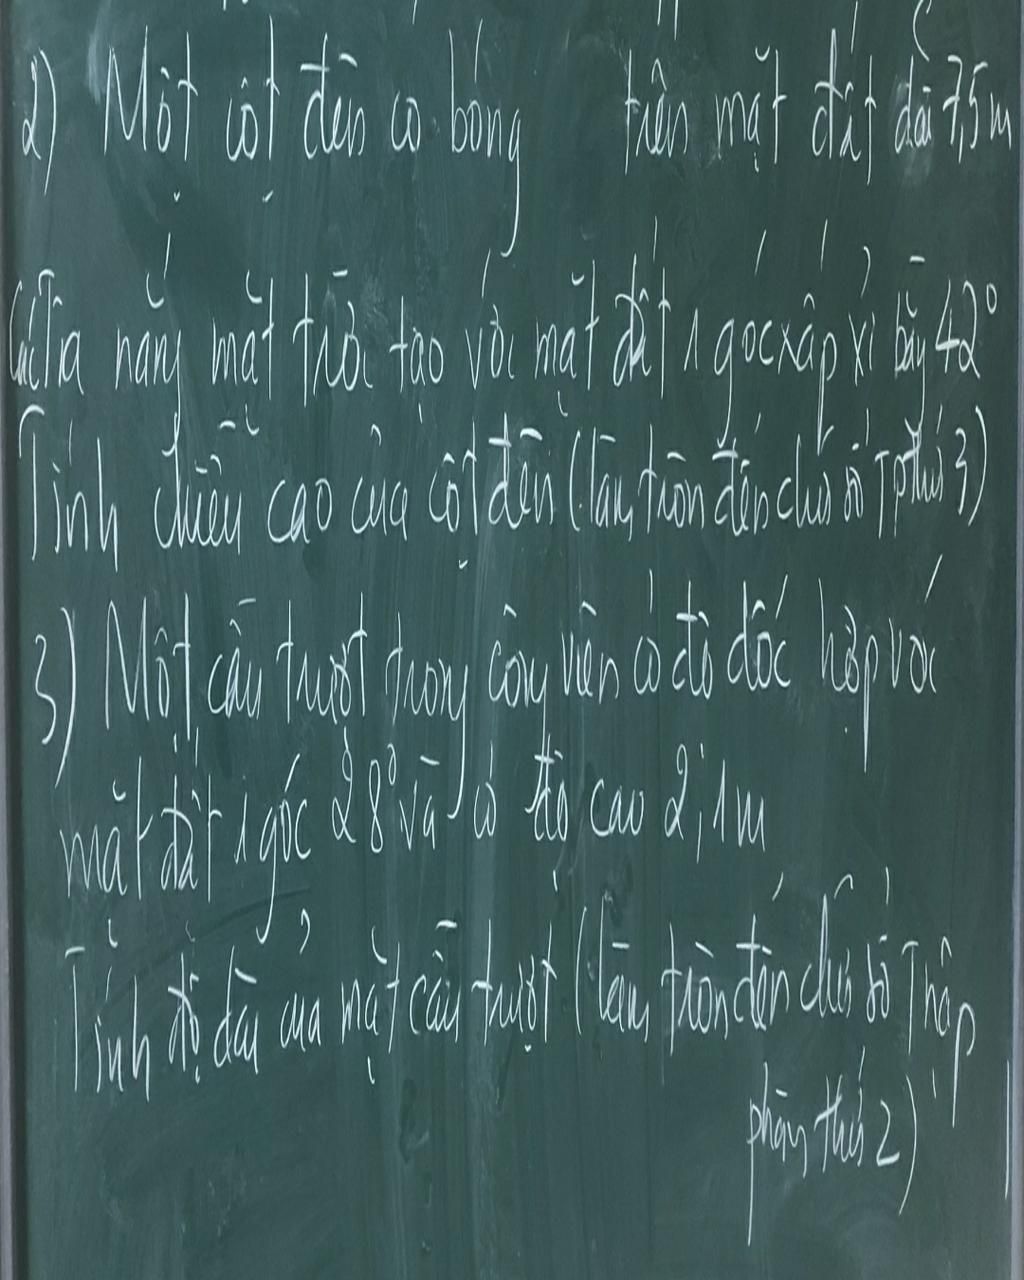 2) Một cột đèn có bóng trên mặt đất dài 7,5m
Các tia nắng mặt trời tạo với mặt đất 1 góc xấp xỉ bằng 42°
Tính chiều cao của cột đèn (làm tròn đến chữ số TP thứ 3)
3) Một cầu trượt trong công viên có độ dốc hợp với
mặt đất 1 góc 28° và có độ cao 2,1m
Tính độ dài của mặt cầu trượt (làm tròn đến chữ số Thập
phân thứ 2)